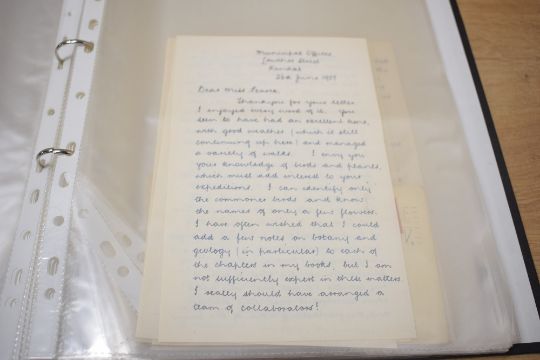 Municipal Offices
Lowther Street
Kendal
June 1957
Dear Miss
Thankyou for your letter
I enjoyed every word of it. You
seem to have had an excellent time,
with good weather (which is still
continuing up here) and managed
a variety of walks. I envy you
your knowledge of birds and plants,
which must add interest to your
expeditions. I can identify only
the commoner birds and know
the names of only a few flowers.
I have often wished that I could
add a few notes on botany and
geology (in particular) to each of
the chapters in my books, but I am
not sufficiently expert in these matters.
I really should have arranged a
team of collaborators!